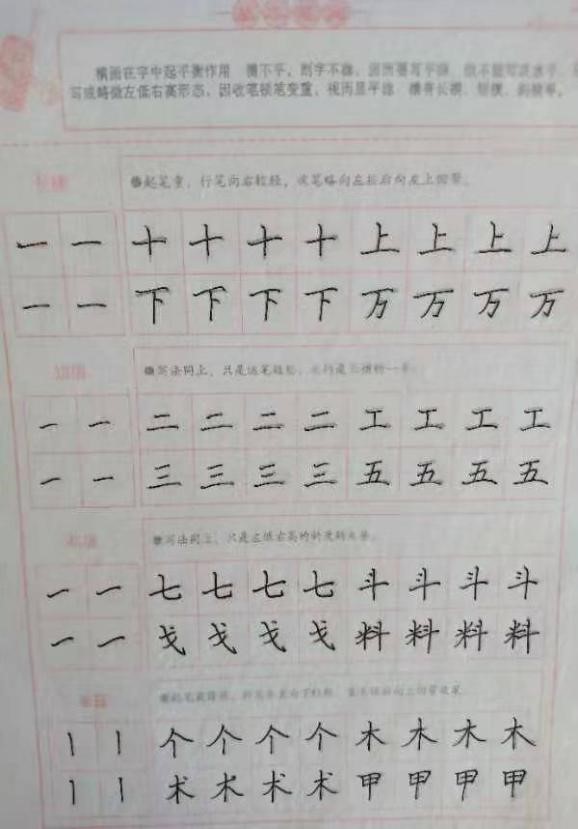 横画在字中起平衡作用 横不平，则字不稳，因而要写平稳
写成略微左低右高形态，因收笔顿笔变重，视而显平稳 横有长横、短横、斜横等。
长横
起笔重，行笔向右较轻，收笔略向左按后向左上回带。
一 一 十 十 十 十 上 上 上 上
一 一 下 下 下 下 万 万 万 万
短横
写法同上，只是运笔较短，
一 一 二 二 二 二 工 工 工 工
一 一 三 三 三 三 五 五 五 五
斜横
写法同上，只是左低右高的斜度稍大些。
一 一 七 七 七 七 斗 斗 斗 斗
一 一 戈 戈 戈 戈 料 料 料 料
丨 丨 个 个 个 个 木 木 木 木
丨 丨 术 术 术 术 甲 甲 甲 甲